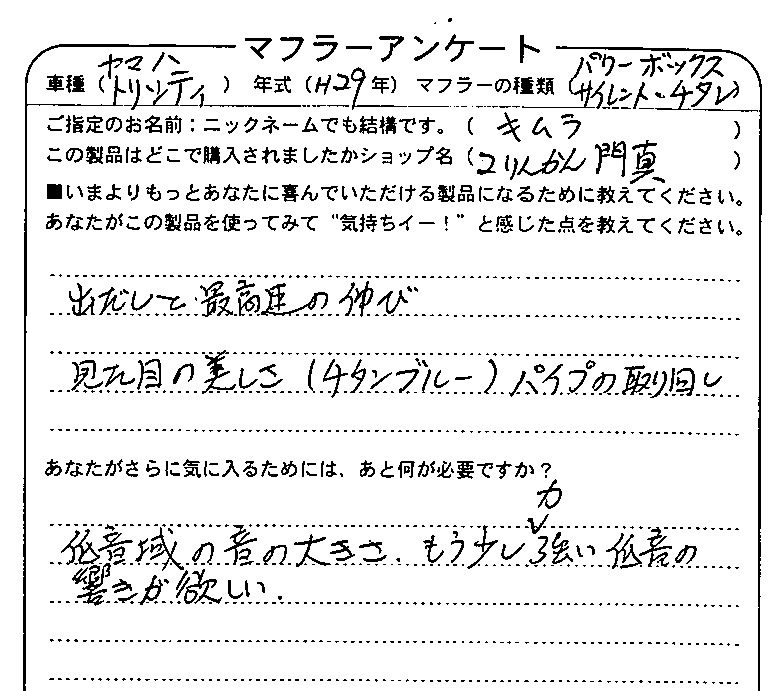 マフラーアンケート
車種（ヤマハ トリシティ） 年式（H29年） マフラーの種類（パワーボックス サイレント・チタン）
ご指定のお名前：ニックネームでも結構です。（キムラ）
この製品はどこで購入されましたかショップ名（2りんかん 門真）
■いまよりもっとあなたに喜んでいただける製品になるために教えてください。
あなたがこの製品を使ってみて“気持ちイー！”と感じた点を教えてください。
出だしと最高速の伸び
見た目の美しさ（チタンブルー）パイプの取り回し
あなたがさらに気に入るためには、あと何が必要ですか？
低音域の音の大きさ、もう少し力強い低音の
響きが欲しい．